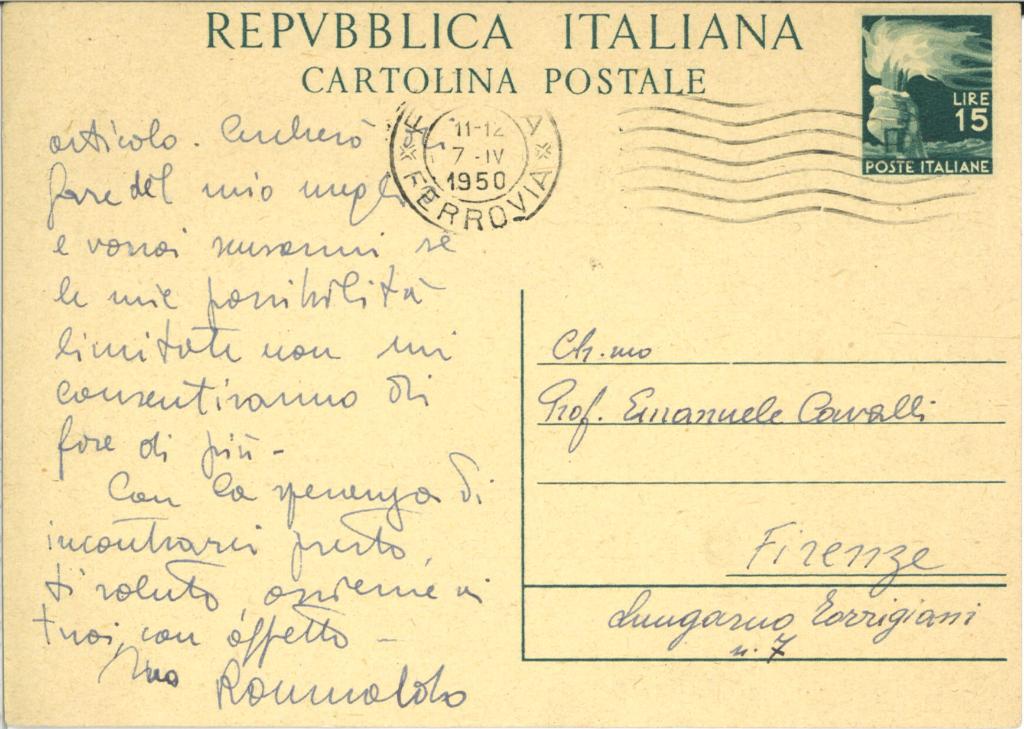 REPVBBLICA ITALIANA
CARTOLINA POSTALE
LIRE
15
POSTE ITALIANE
11-12
7-IV
1950
FERROVIA
articolo. Cercherò
fare del mio meglio
e vorrai scusarmi se
le mie possibilità
limitate non mi
consentiranno di
fare di più -
Con la speranza di
incontrarci presto,
ti saluto, assieme ai
tuoi, con affetto -
tuo Romualdo
Ch.mo
Prof. Emanuele Cavalli
Firenze
Lungarno Torrigiani
n. 7